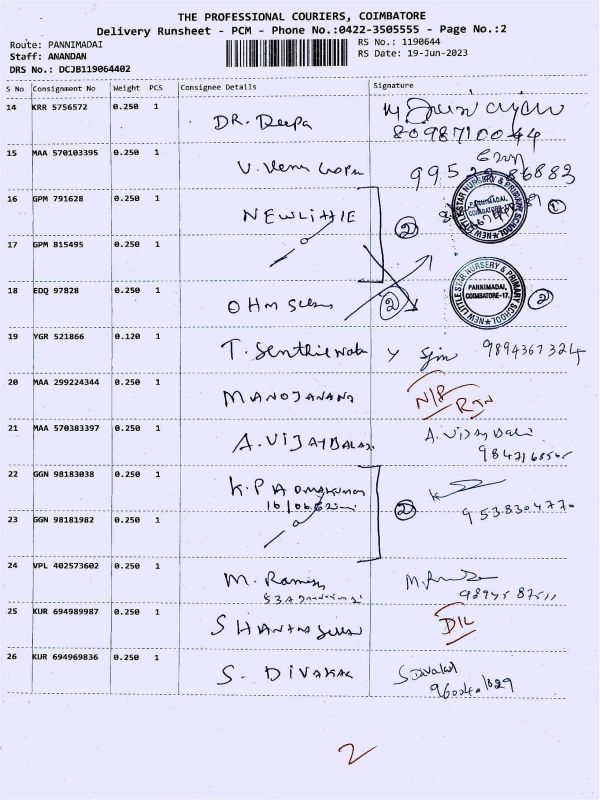 THE PROFESSIONAL COURIERS, COIMBATORE
Delivery Runsheet - PCM - Phone No.:0422-3505555 - Page No.:2
Route: PANNIMADAI
RS No.: 1190644
Staff: ANANDAN
RS Date: 19-Jun-2023
DRS No.: DCJB119064402
S No Consignment No Weight PCS Consignee Details Signature
14 KRR 5756572 0.250 1 DR. Deepa
8098710044
15 MAA 570103395 0.250 1 V. Venu Gopal
16 GPM 791628 0.250 1 NEWLITTLE 2 1
NEW LITTLE STAR NURSERY & PRIMARY SCHOOL
PANNIMADAI,
COIMBATORE-17.
17 GPM 815495 0.250 1
18 EDQ 97828 0.250 1 OHM 2 2
NEW LITTLE STAR NURSERY & PRIMARY SCHOOL
PANNIMADAI,
COIMBATORE-17.
19 YGR 521866 0.120 1 T. 9894367324
20 MAA 299224344 0.250 1 MANOJANAND
RTN
21 MAA 570383397 0.250 1 A. VIJAYBALAJI A. Vijay Balaji
22 GGN 98183038 0.250 1 K. 2
9538304770
23 GGN 98181982 0.250 1
24 VPL 402573602 0.250 1 M. Ramesh
25 KUR 694989987 0.250 1 D/L
26 KUR 694969836 0.250 1 S. DIVAKAR S Divakar
2